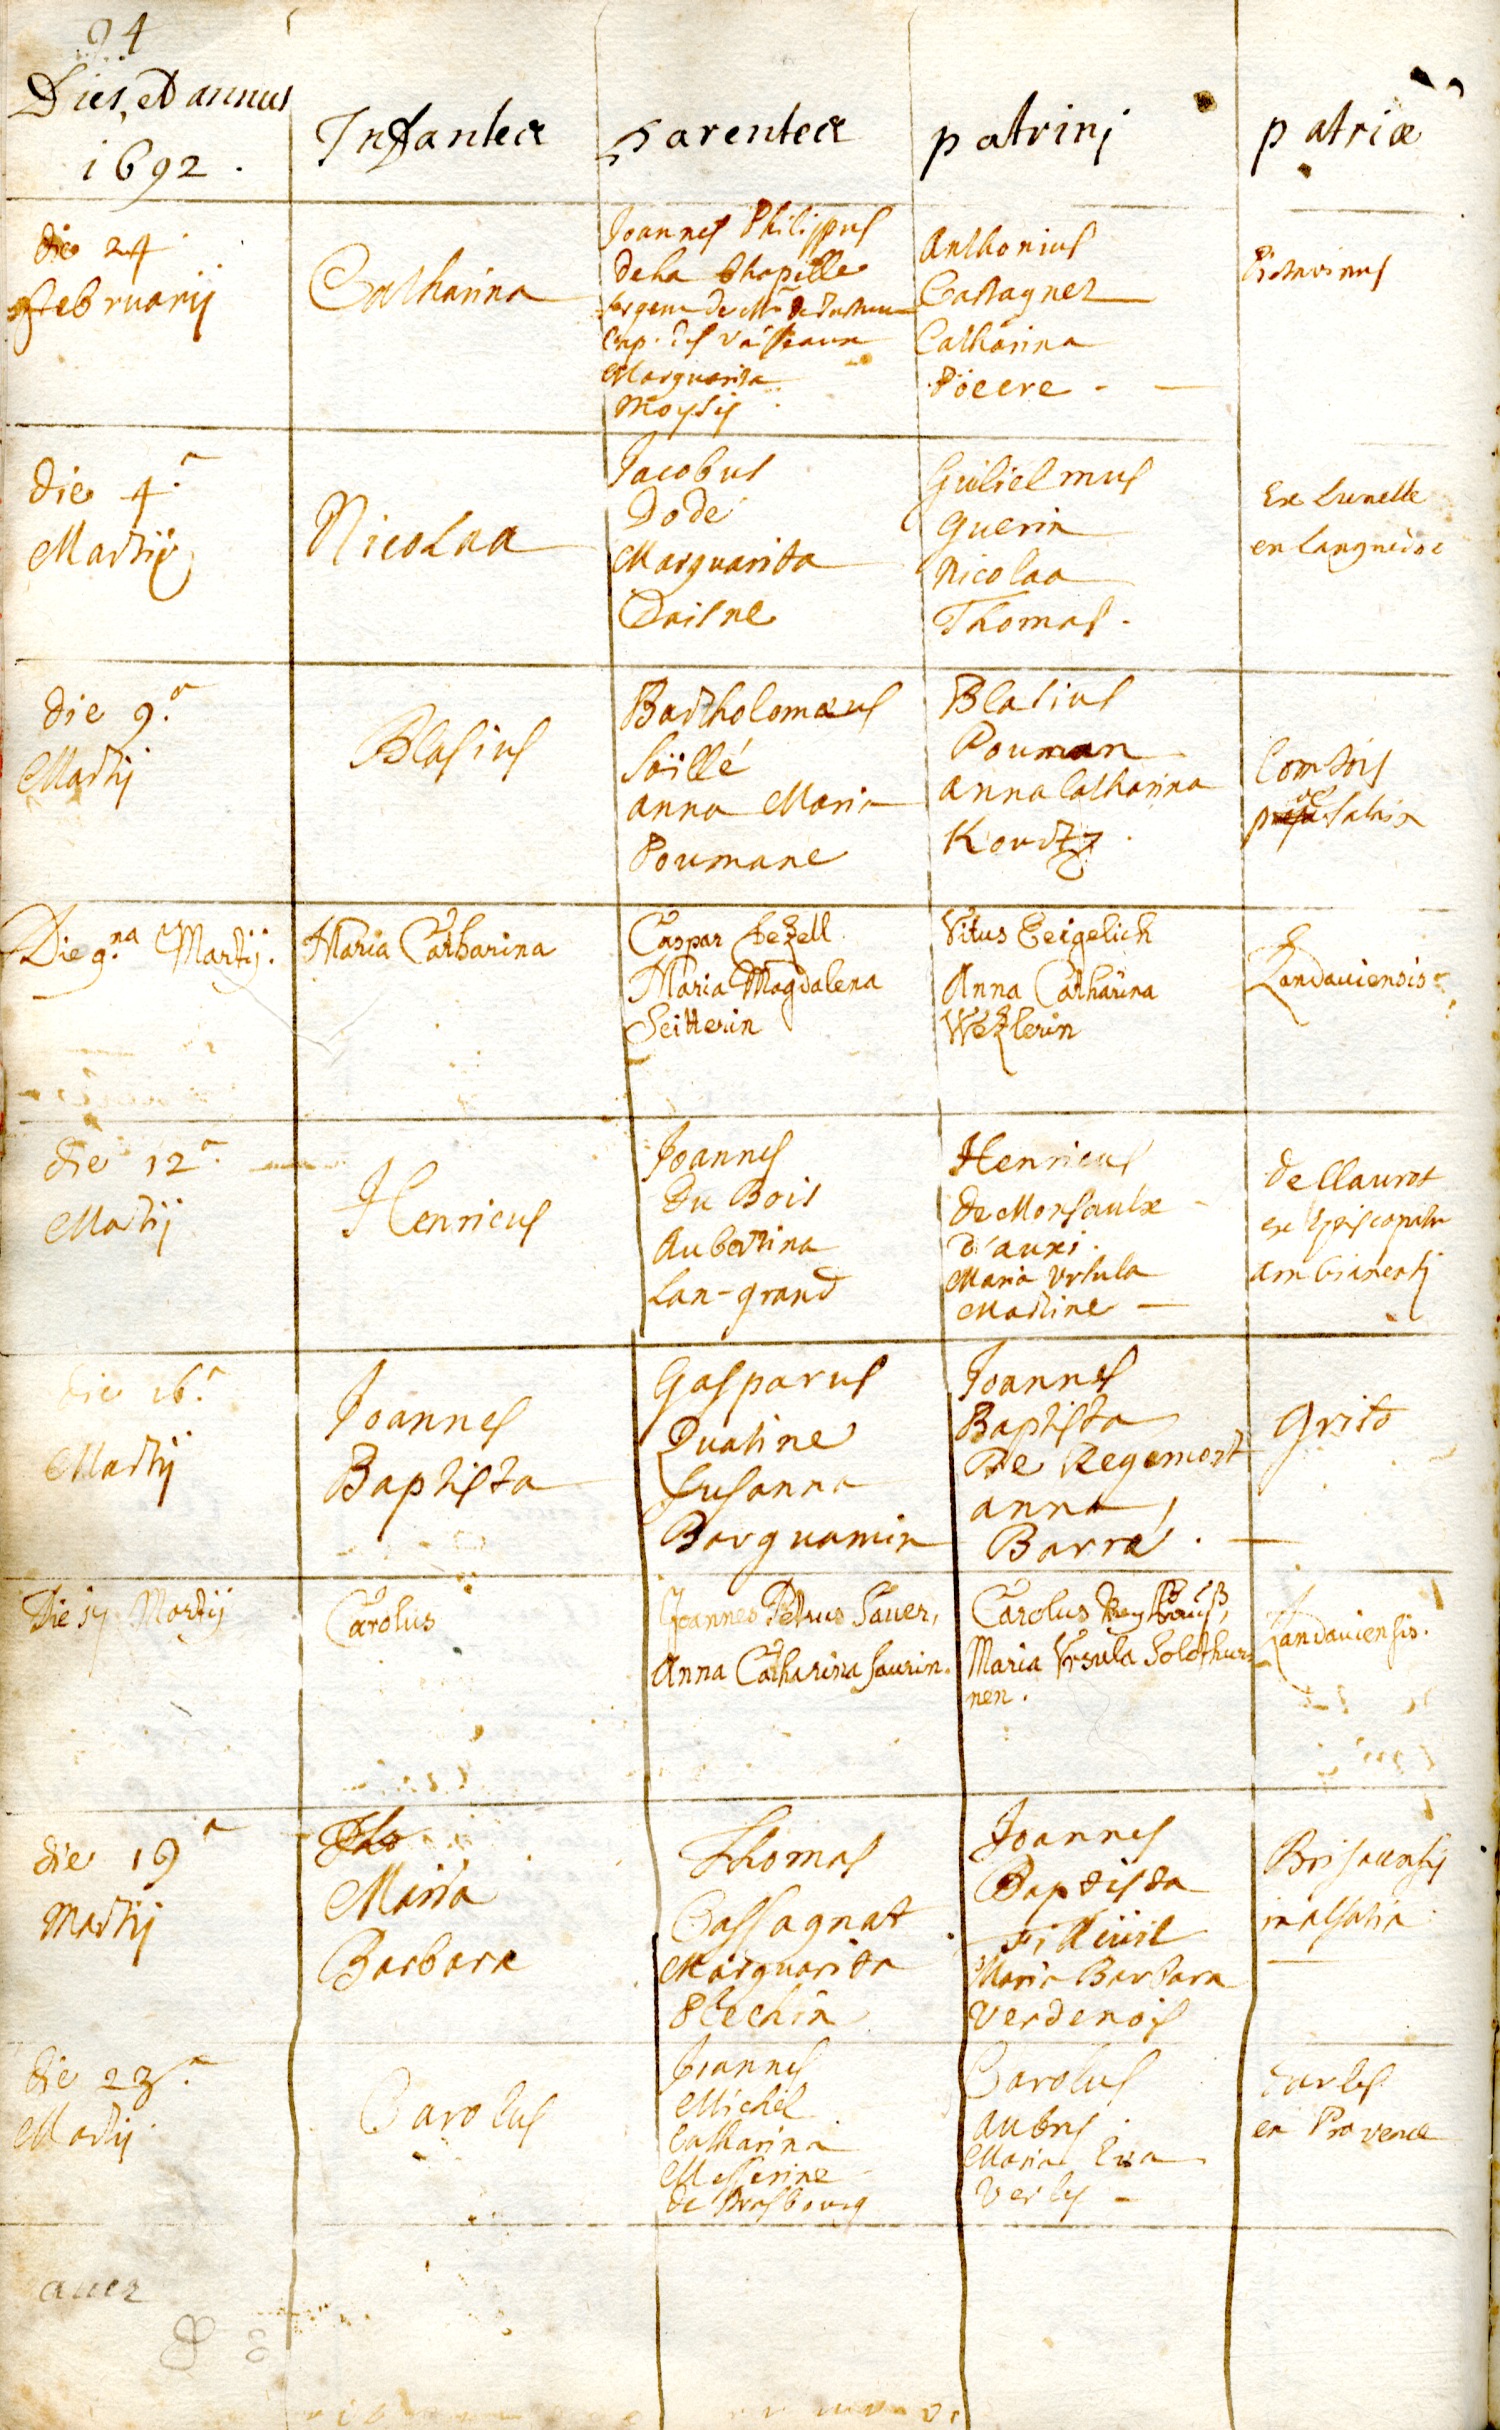 94
Dies, et annus
1692.
Infantes
parentes
patrinj
patriæ
die 24
februarij
Catharina
Joannes Philippus
de la Chapelle
cap. des vaisseaux
Marguarita
Moysis
Anthonius
Castagnet
Catharina
Pictavinus
die 4.a
Martij
Nicolaa
Jacobus
Dodé
Marguarita
Daisne
Guilielmus
Guerin
Nicolaa
Thomas.
Ex Lunelle
en Languedoc
die 9.a
Martij
Blasius
Bartholomæus
Saillé
anna Maria
Poumane
Blasius
Pouman
anna Catharina
Kourtz.
Comtois
Die 9.na Martij.
Maria Catharina
Caspar Hezell
Maria Magdalena
Seitterin
Vitus Geigelich
Anna Catharina
Wezlerin
Landauiensis
die 12a.
Martij
Henricus
Joannes
Du Bois
Aubertina
Lan-grand
Henricus
de Monsaulx
d'auxi.
Maria Ursula
Martine
ex Episcopatu
ambianensi
die 16.a
Martij
Joannes
Baptista
Gasparus
Quatine
Susanna
Barguamin
Joannes
Baptista
De Regemort
anna
Barré.
Die 17 Martij
Carolus
Joannes Petrus Sauer,
Anna Catharina Saurin.
Carolus
Maria Vrsula Solothur=
nen.
Landauiensis.
die 19a
Martij
Maria
Barbara
Thomas
Cassagnat
Marguarita
Plechin
Joannes
Baptista
Maria Barbara
Verdenois
Brisacensis
in alsatia
die 23.a
Martij
Carolus
Joannes
Michel
Catharina
Messerine
de Strasbourg
Carolus
Aubry
Maria Eva
Verles
en Provence